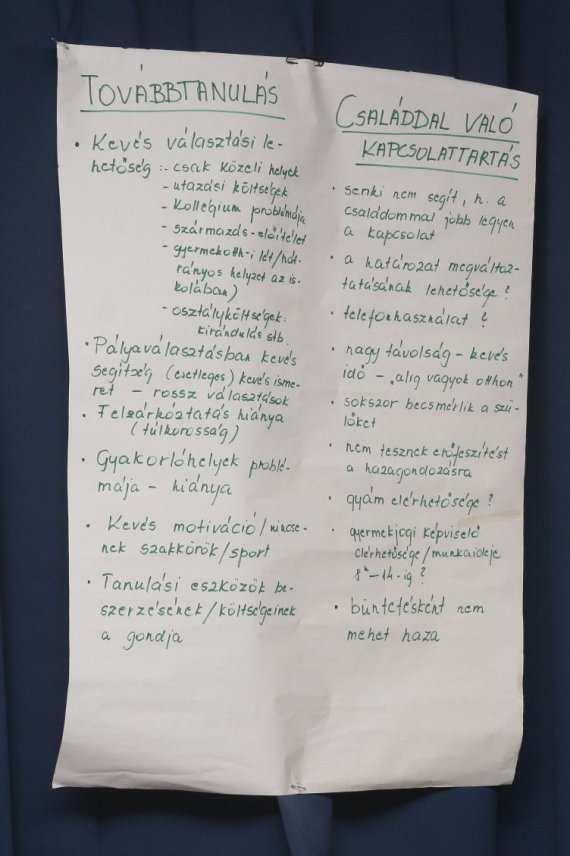 TOVÁBBTANULÁS
• Kevés választási le-
hetőség :- csak közeli helyek
- utazási költségek
- Kollégium problémája
- származás - előítélet
- gyermekotth-i lét/hát-
rányos helyzet az is-
kolában)
- osztályköltségek:
kirándulás stb.
• Pályaválasztásban kevés
segítség (esetleges) kevés isme-
ret - rossz választások
• Felzárkóztatás hiánya
(túlkorosság)
• Gyakorlóhelyek problé-
mája - hiánya
• Kevés motiváció/nincse-
nek szakkörök/sport
• Tanulási eszközök be-
szerzésének/költségeinek
a gondja
CSALÁDDAL VALÓ
KAPCSOLATTARTÁS
• senki nem segít, h. a
családommal jobb legyen
a kapcsolat
• a határozat megváltoz-
tatásának lehetősége?
• telefonhasználat?
• nagy távolság - kevés
idő - „alig vagyok otthon"
• sokszor becsmérlik a szü-
lőket
• nem tesznek erőfeszítést
a hazagondozásra
• gyám elérhetősége?
• gyermekjogi képviselő
elérhetősége/munkaideje
8h-14-ig?
• büntetésként nem
mehet haza